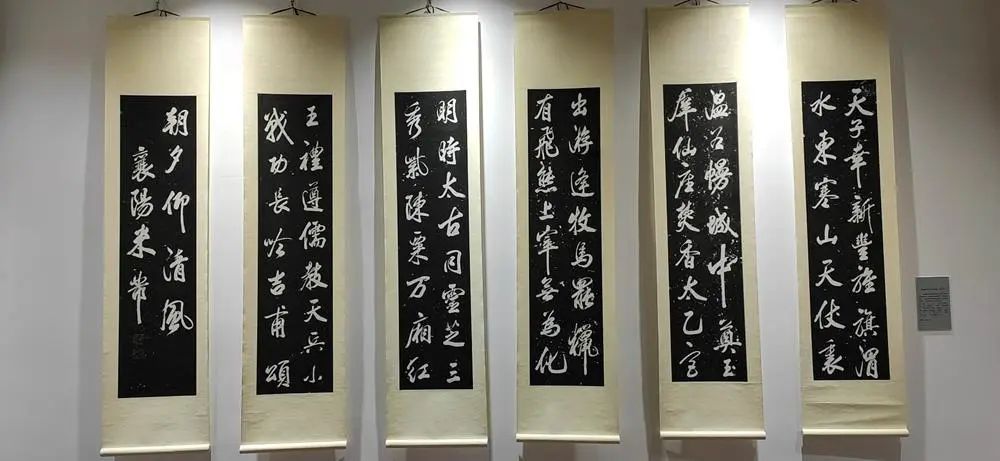 天子幸新豐旌旗渭
水東寒山天仗裏
温谷幔城中奠玉
羣仙座焚香太乙宫
出游逢牧馬罷獵
有飛熊上宰無為化
明時太古同靈芝三
秀紫陳粟万廂紅
王禮遵儒教天兵小
戰功長吟吉甫頌
朝夕仰清風
襄陽米芾